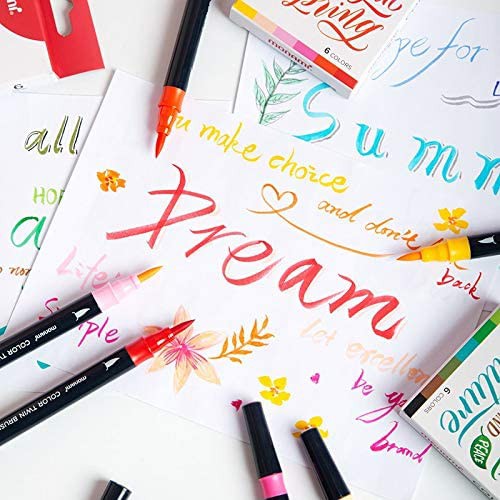 monami
6 COLORS
monami
pe for
Summ
all
you make choice
and don't
back
Dream
HOPE
a
Life
Simple
Let excellent
be yo
brand
monami COLOR TWIN BRUSH
monami COLOR TWIN BRUS
6 COLORS
AND PEACE